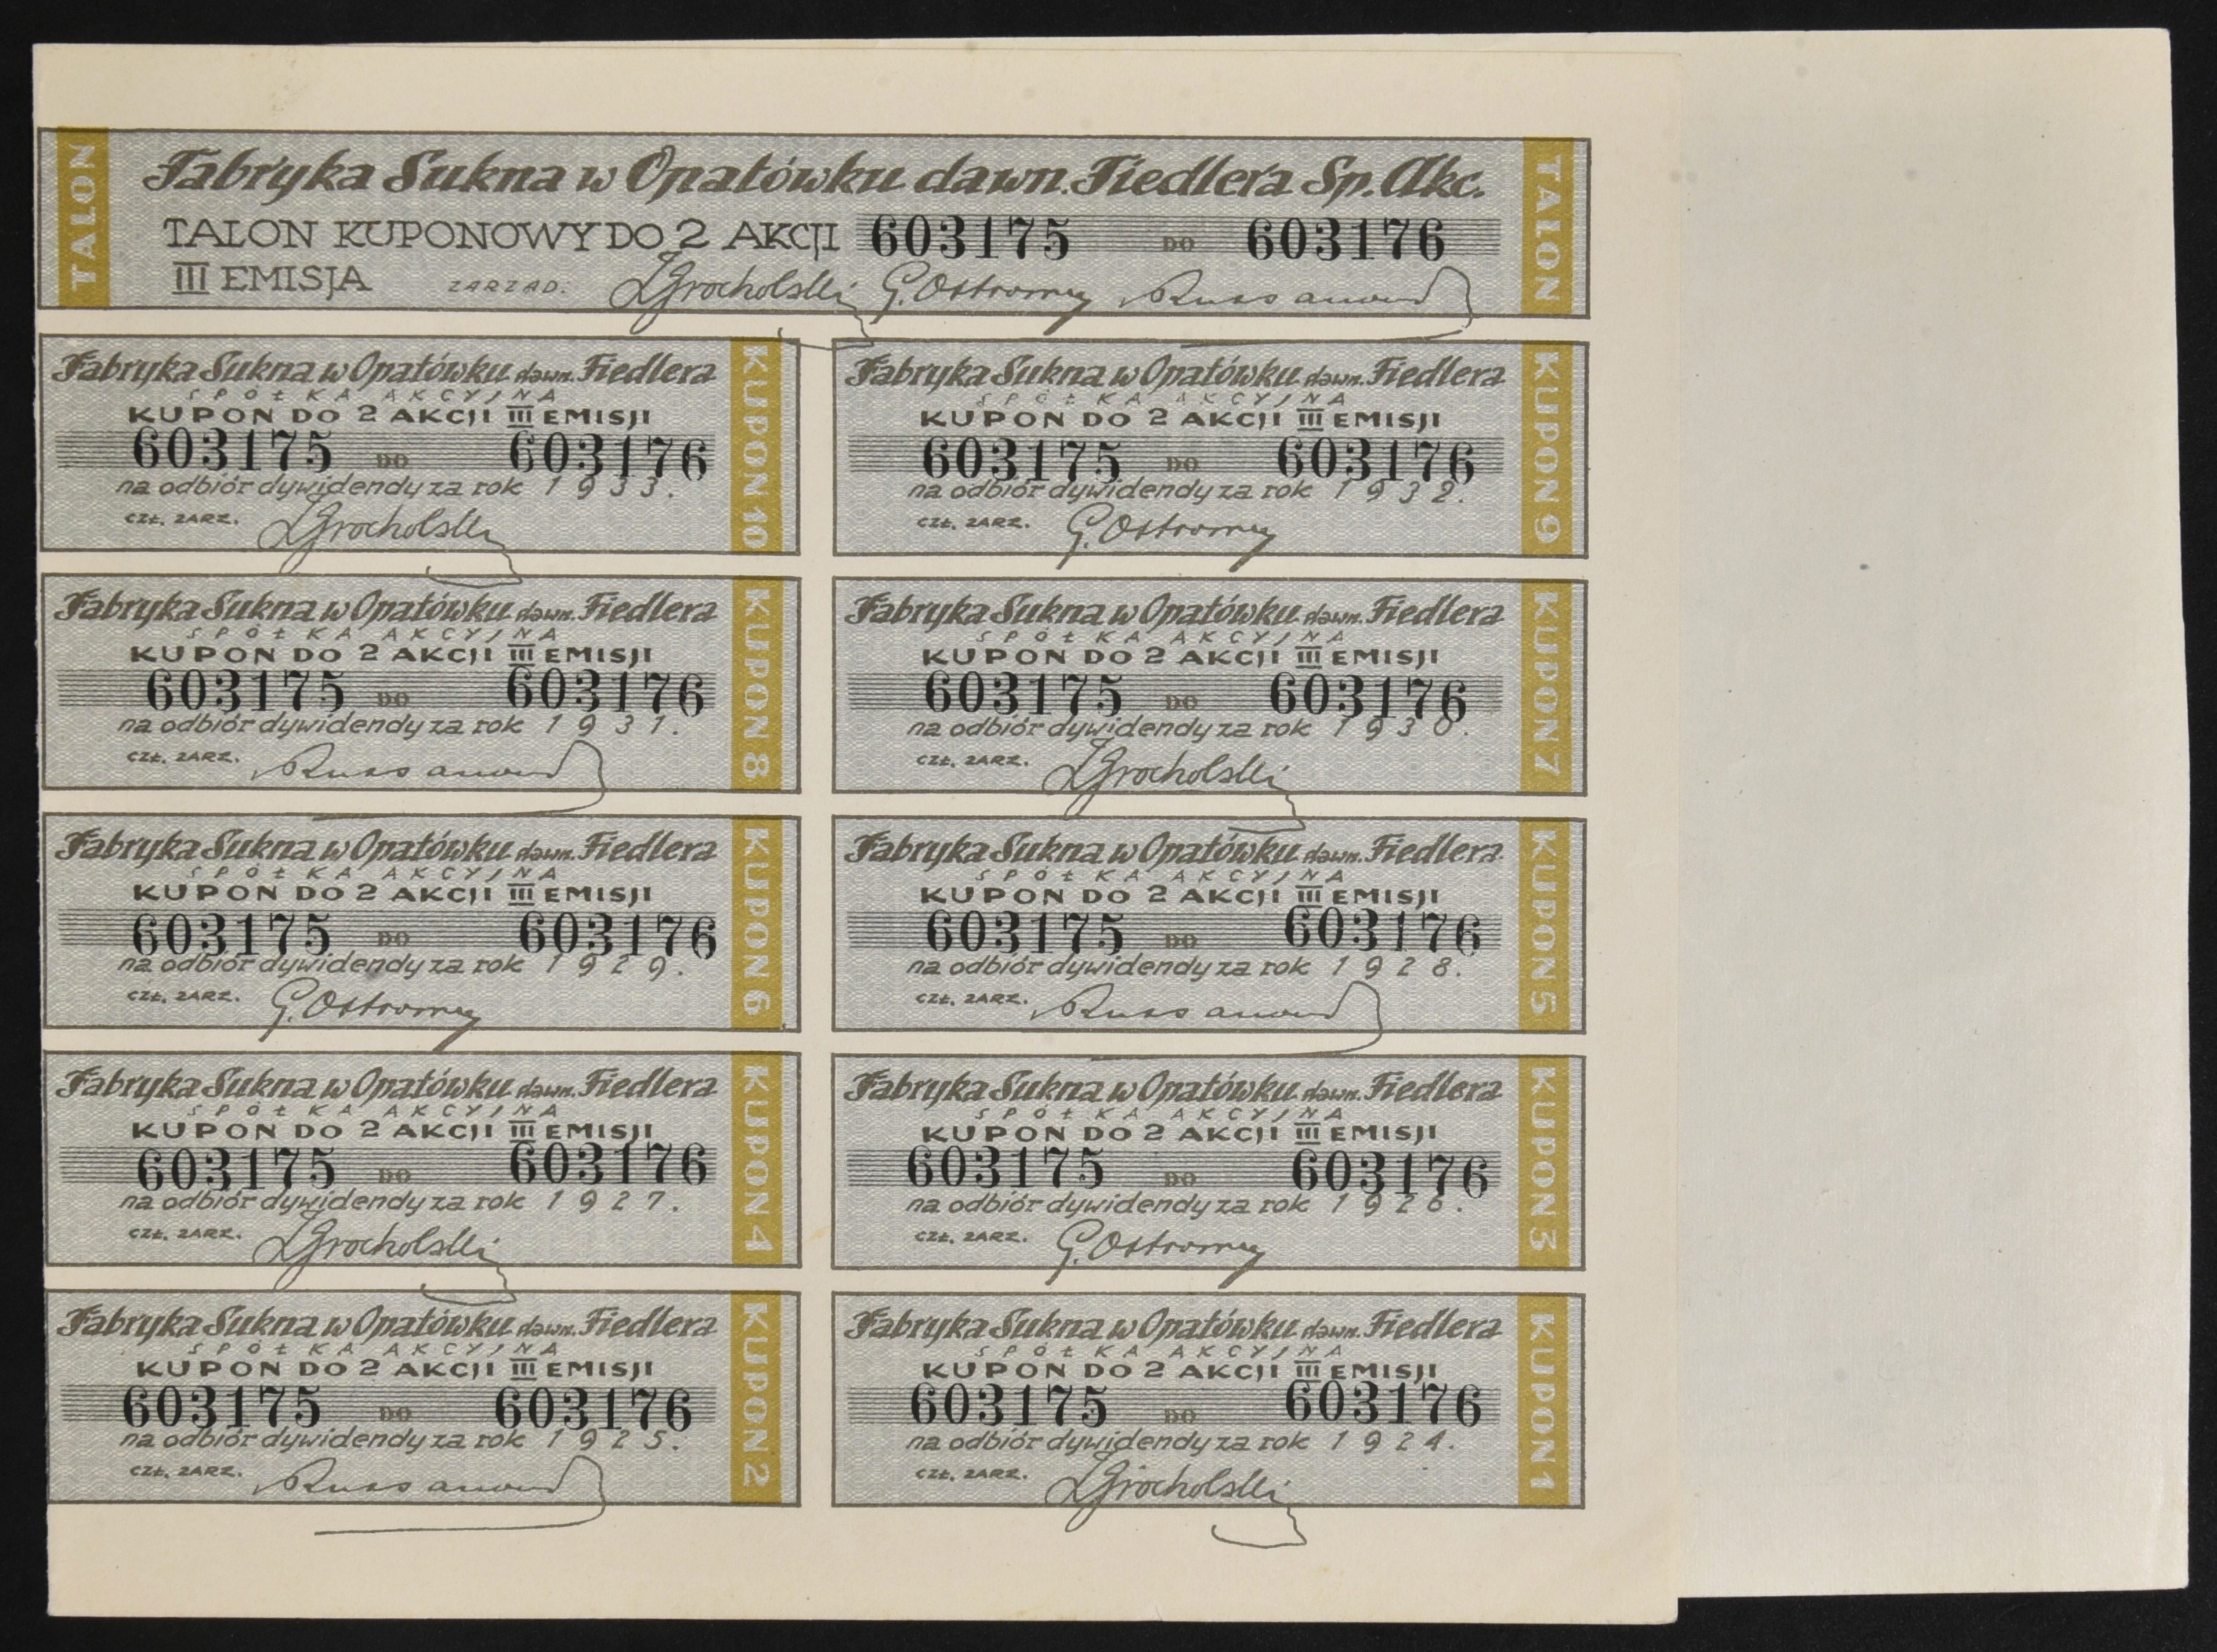 TALON
Fabryka Sukna w Opatówku dawn. Fiedlera Sp. Akc.
TALON KUPONOWY DO 2 AKCJI 603175 DO 603176
III EMISJA ZARZĄD. ZGrocholski G. Ostromęg
TALON
Fabryka Sukna w Opatówku dawn. Fiedlera
SPÓŁKA AKCYJNA
KUPON DO 2 AKCJI III EMISJI
603175 DO 603176
na odbiór dywidendy za rok 1933.
CZŁ. ZARZ. ZGrocholski
KUPON 10
Fabryka Sukna w Opatówku dawn. Fiedlera
SPÓŁKA AKCYJNA
KUPON DO 2 AKCJI III EMISJI
603175 DO 603176
na odbiór dywidendy za rok 1932.
CZŁ. ZARZ. G. Ostromęg
KUPON 9
Fabryka Sukna w Opatówku dawn. Fiedlera
SPÓŁKA AKCYJNA
KUPON DO 2 AKCJI III EMISJI
603175 DO 603176
na odbiór dywidendy za rok 1931.
CZŁ. ZARZ.
KUPON 8
Fabryka Sukna w Opatówku dawn. Fiedlera
SPÓŁKA AKCYJNA
KUPON DO 2 AKCJI III EMISJI
603175 DO 603176
na odbiór dywidendy za rok 1930.
CZŁ. ZARZ. ZGrocholski
KUPON 7
Fabryka Sukna w Opatówku dawn. Fiedlera
SPÓŁKA AKCYJNA
KUPON DO 2 AKCJI III EMISJI
603175 DO 603176
na odbiór dywidendy za rok 1929.
CZŁ. ZARZ. G. Ostromęg
KUPON 6
Fabryka Sukna w Opatówku dawn. Fiedlera
SPÓŁKA AKCYJNA
KUPON DO 2 AKCJI III EMISJI
603175 DO 603176
na odbiór dywidendy za rok 1928.
CZŁ. ZARZ.
KUPON 5
Fabryka Sukna w Opatówku dawn. Fiedlera
SPÓŁKA AKCYJNA
KUPON DO 2 AKCJI III EMISJI
603175 DO 603176
na odbiór dywidendy za rok 1927.
CZŁ. ZARZ. ZGrocholski
KUPON 4
Fabryka Sukna w Opatówku dawn. Fiedlera
SPÓŁKA AKCYJNA
KUPON DO 2 AKCJI III EMISJI
603175 DO 603176
na odbiór dywidendy za rok 1926.
CZŁ. ZARZ. G. Ostromęg
KUPON 3
Fabryka Sukna w Opatówku dawn. Fiedlera
SPÓŁKA AKCYJNA
KUPON DO 2 AKCJI III EMISJI
603175 DO 603176
na odbiór dywidendy za rok 1925.
CZŁ. ZARZ.
KUPON 2
Fabryka Sukna w Opatówku dawn. Fiedlera
SPÓŁKA AKCYJNA
KUPON DO 2 AKCJI III EMISJI
603175 DO 603176
na odbiór dywidendy za rok 1924.
CZŁ. ZARZ. ZGrocholski
KUPON 1